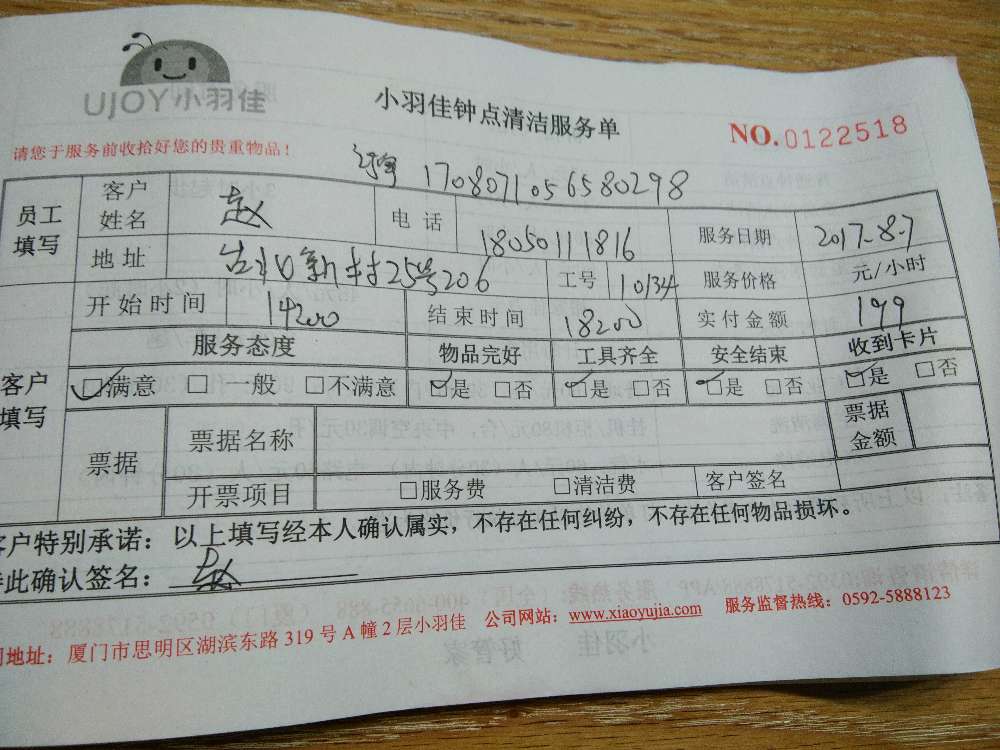 UJOY小羽佳
小羽佳钟点清洁服务单
NO.0122518
请您于服务前收拾好您的贵重物品！
1708071056580298
员工填写 客户姓名 赵 电话 18050111816 服务日期 2017-8-7
地址 新村25号206 工号 10134 服务价格 元/小时
开始时间 14:00 结束时间 18:00 实付金额 199
客户填写 服务态度 物品完好 工具齐全 安全结束 收到卡片
☑满意 □一般 □不满意 ☑是 □否 ☑是 □否 ☑是 □否 ☑是 □否
票据 票据名称 票据金额
开票项目 □服务费 □清洁费 客户签名
客户特别承诺：以上填写经本人确认属实，不存在任何纠纷，不存在任何物品损坏。
此确认签名：赵
地址：厦门市思明区湖滨东路319号A幢2层小羽佳 公司网站：www.xiaoyujia.com 服务监督热线：0592-5888123